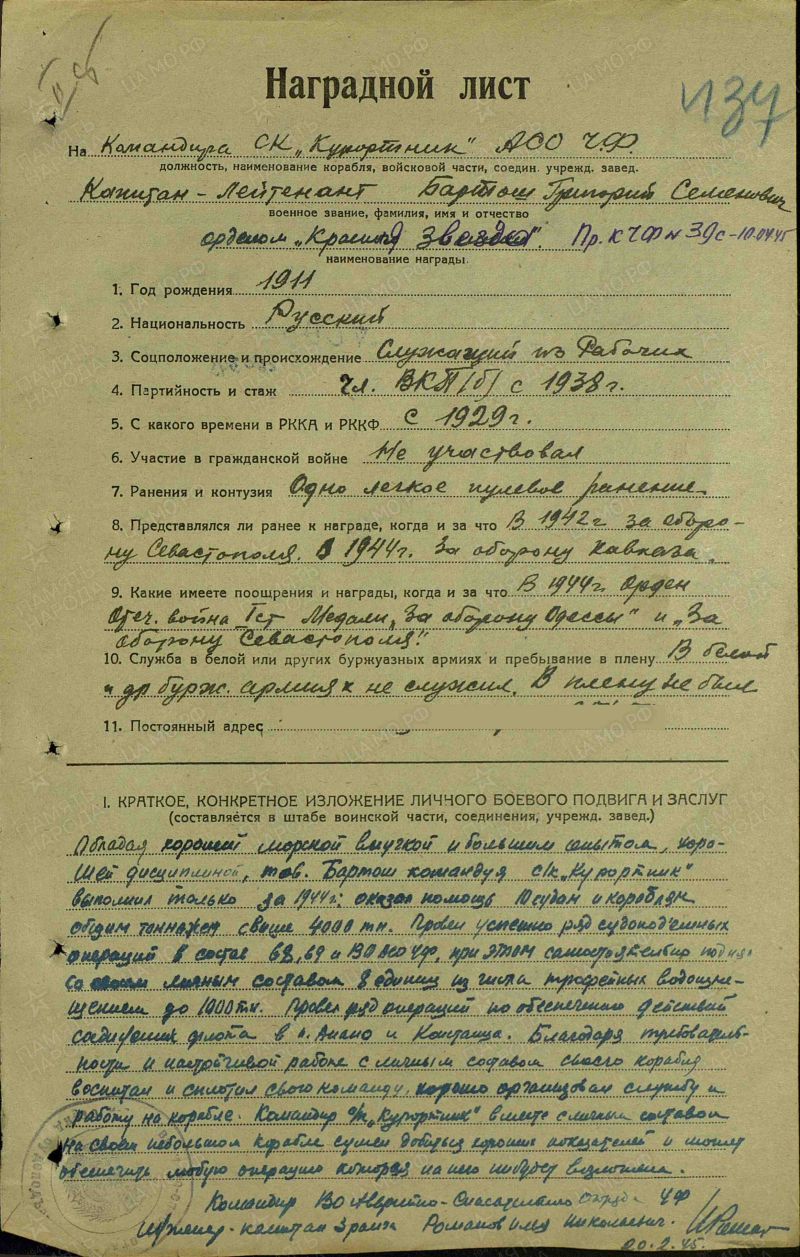 Наградной лист
И37
На Командира СК „Курортник" АСО ЧФ.
должность, наименование корабля, войсковой части, соедин. учрежд. завед.
Капитан-Лейтенант Бартош Григорий Семенович
военное звание, фамилия, имя и отчество
орденом „Красная Звезда". Пр. КЧФ № 39с-10.04.45
наименование награды.
1. Год рождения 1911
2. Национальность Русский
3. Соцположение и происхождение Служащий из Рабочих
4. Партийность и стаж Чл. ВКП/б/ с 1938 г.
5. С какого времени в РККА и РККФ с 1929 г.
6. Участие в гражданской войне Не участвовал
7. Ранения и контузия Одно легкое пулевое ранение
8. Представлялся ли ранее к награде, когда и за что В 1942 г за оборо-
ну Севастополя. В 1944 г. За оборону Кавказа.
9. Какие имеете поощрения и награды, когда и за что В 1944 г. Орден
Отеч. война I ст Медали „За оборону Одессы" и „За
оборону Севастополя".
10. Служба в белой или других буржуазных армиях и пребывание в плену В белой
и др бурж. армиях не служил. В плену не был
11. Постоянный адрес
I. КРАТКОЕ, КОНКРЕТНОЕ ИЗЛОЖЕНИЕ ЛИЧНОГО БОЕВОГО ПОДВИГА И ЗАСЛУГ
(составляется в штабе воинской части, соединения, учрежд. завед.)
Обладая хорошей морской выучкой и большим опытом, хоро-
шей дисциплиной, тов. Бартош командуя с/к „Курортник"
выполнил только за 1944 г; оказал помощь 10 судам и кораблям
общим тоннажем свыше 4000 тн. Провел успешно ряд судоподъемных
операций в составе 68, 69 и ВО АСО ЧФ, при этом самостоятельно поднял
со своим личным составом 8 единиц из числа трофейных водоизме-
щением до 1000 тн. Провел ряд операций по обеспечению действий
соединения флота в п. Анапа и Констанца. Благодаря требователь-
ности и настойчивой работе с личным составом своего корабля
воспитал и сплотил свою команду, хорошо организовал службу и
работу на корабле. Командир с/к „Курортник" вместе с личным составом
на своем небольшом корабле сумел добиться хороших показателей и может
обеспечить любую операцию которая на него будет возложена.
Командир ВО Аварийно-Спасательного ЧФ
Инженер-капитан 3 ранга Романов Илья Николаевич.
20.2.45.
ЦАМО.РФ